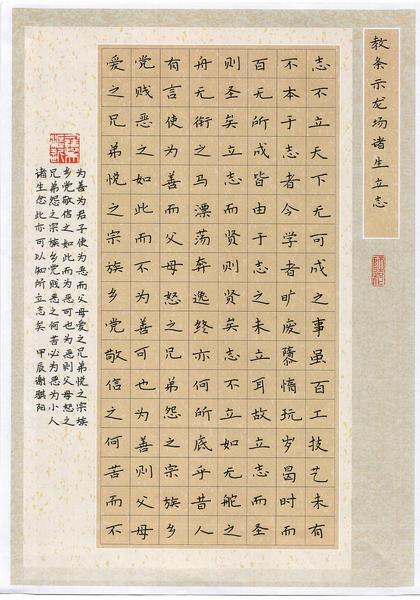 教条示龙场诸生立志
志不立天下无可成之事虽百工技艺未有
不本于志者今学者旷废隳惰玩岁曷时而
百无所成皆由于志之未立耳故立志而圣
则圣矣立志而贤则贤矣志不立如无舵之
舟无衔之马漂荡奔逸终亦何所底乎昔人
有言使为善而父母怒之兄弟怨之宗族乡
党贱恶之如此而不为善可也为善则父母
爱之兄弟悦之宗族乡党敬信之何苦而不
为善为君子使为恶而父母爱之兄弟悦之宗族
乡党敬信之如此而为恶可也为恶则父母怒之
兄弟怨之宗族乡党贱恶之何苦必为恶为小人
诸生念此亦可以知所立志矣 甲辰谢骐阳